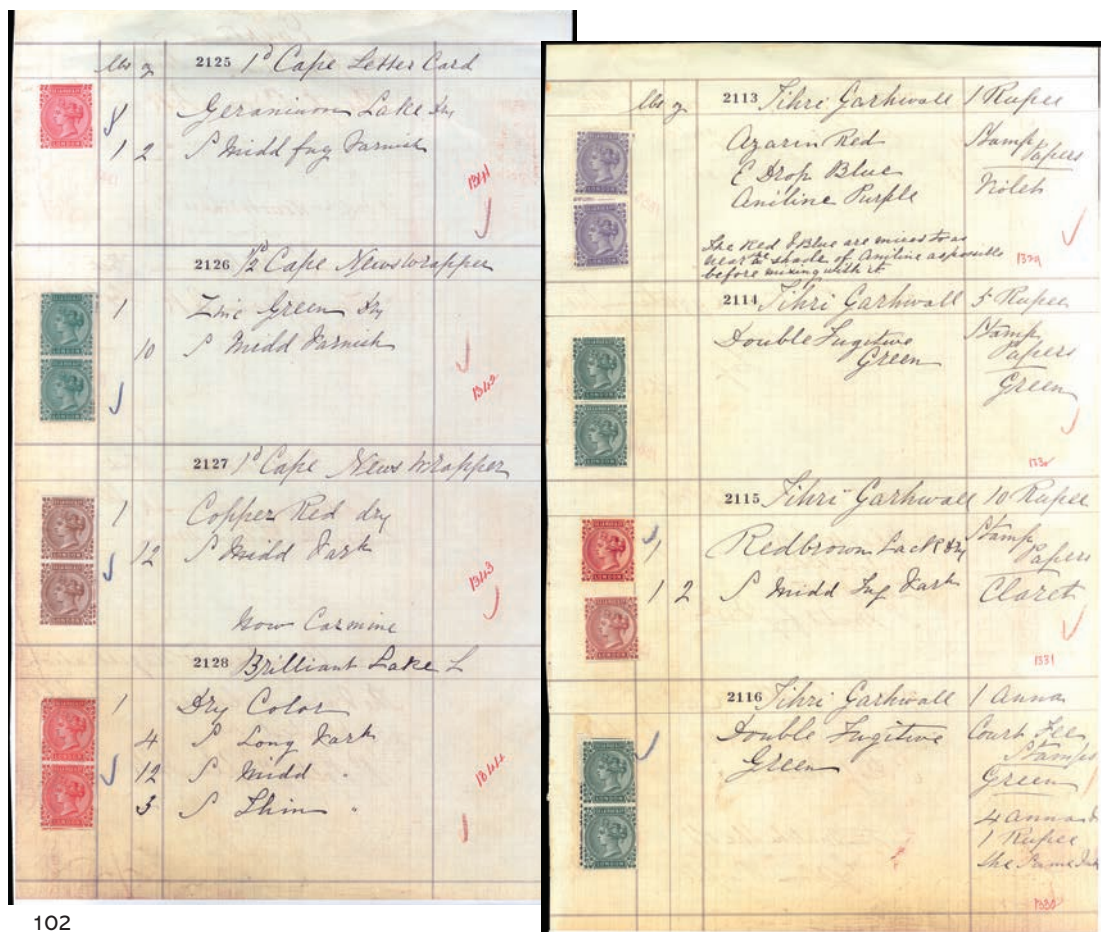 lbs oz 2125 1d Cape Letter Card
8 Geranium Lake Dry
1 2 S Midd fug Varnish
1341
2126 1/2 Cape Newswrapper
1 Zinc Green Dry
10 S Midd Varnish
1342
2127 1d Cape News Wrapper
1 Copper Red dry
12 S Midd Vark
1343
Now Carmine
2128 Brilliant Lake L
1 Dry Color
4 S Long Vark
12 S Midd "
3 S Thin "
1344
102
lbs oz 2113 Tihri Garhwall 1 Rupee
Azarin Red Stamp
E Drop Blue Papers
Aniline Purple Violet
The Red & Blue are mixed to as
near the shade of Aniline as possible
before mixing with it
1329
2114 Tihri Garhwall 5 Rupee
Double Fugitive Stamp
Green Papers
Green
1330
2115 Tihri Garhwall 10 Rupee
1 Redbrown Lack Dry Stamp
Papers
1 2 S Midd Fug Vark Claret
1331
2116 Tihri Garhwall 1 Anna
Double Fugitive Court Fee
Green Stamps
Green
4 Anna &
1 Rupee
the Same Ink
1330